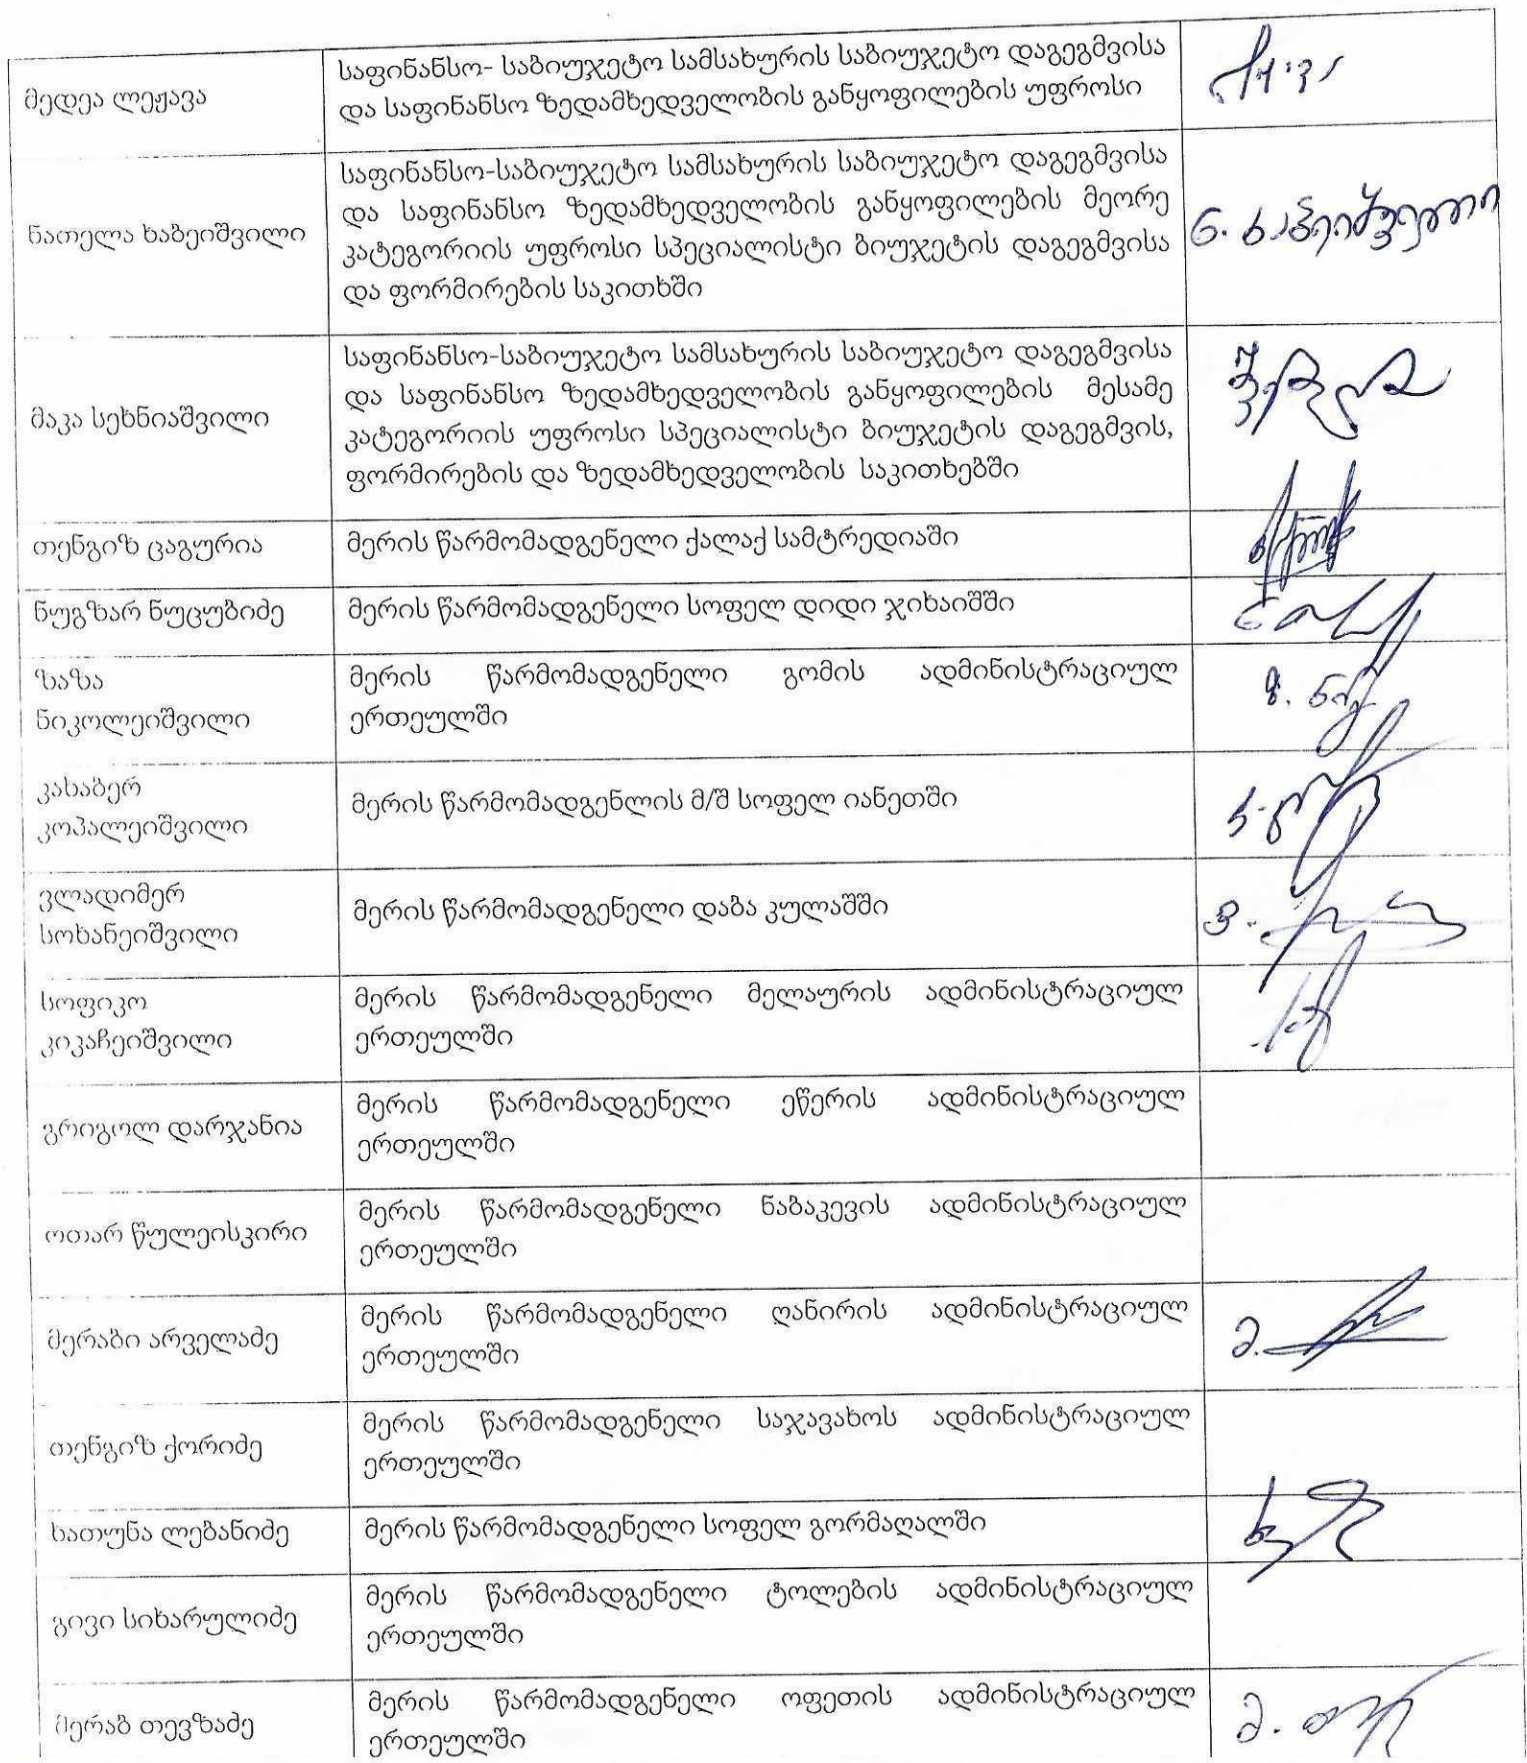 მედეა ლეჟავა
საფინანსო- საბიუჯეტო სამსახურის საბიუჯეტო დაგეგმვისა
და საფინანსო ზედამხედველობის განყოფილების უფროსი
ნათელა ხაბეიშვილი
საფინანსო-საბიუჯეტო სამსახურის საბიუჯეტო დაგეგმვისა
და საფინანსო ზედამხედველობის განყოფილების მეორე
კატეგორიის უფროსი სპეციალისტი ბიუჯეტის დაგეგმვისა
და ფორმირების საკითხში
ნ. ხაბეიშვილი
მაკა სეხნიაშვილი
საფინანსო-საბიუჯეტო სამსახურის საბიუჯეტო დაგეგმვისა
და საფინანსო ზედამხედველობის განყოფილების მესამე
კატეგორიის უფროსი სპეციალისტი ბიუჯეტის დაგეგმვის,
ფორმირების და ზედამხედველობის საკითხებში
თენგიზ ცაგურია
მერის წარმომადგენელი ქალაქ სამტრედიაში
ნუგზარ ნუცუბიძე
მერის წარმომადგენელი სოფელ დიდი ჯიხაიშში
ზაზა
ნიკოლეიშვილი
მერის წარმომადგენელი გომის ადმინისტრაციულ
ერთეულში
კახაბერ
კოპალეიშვილი
მერის წარმომადგენლის მ/შ სოფელ იანეთში
ვლადიმერ
სოხანეიშვილი
მერის წარმომადგენელი დაბა კულაშში
სოფიკო
კიკაჩეიშვილი
მერის წარმომადგენელი მელაურის ადმინისტრაციულ
ერთეულში
გრიგოლ დარჯანია
მერის წარმომადგენელი ეწერის ადმინისტრაციულ
ერთეულში
ოთარ წულეისკირი
მერის წარმომადგენელი ნაბაკევის ადმინისტრაციულ
ერთეულში
მერაბი არველაძე
მერის წარმომადგენელი ღანირის ადმინისტრაციულ
ერთეულში
თენგიზ ქორიძე
მერის წარმომადგენელი საჯავახოს ადმინისტრაციულ
ერთეულში
ხათუნა ლებანიძე
მერის წარმომადგენელი სოფელ გორმაღალში
გივი სიხარულიძე
მერის წარმომადგენელი ტოლების ადმინისტრაციულ
ერთეულში
მერაბ თევზაძე
მერის წარმომადგენელი ოფეთის ადმინისტრაციულ
ერთეულში